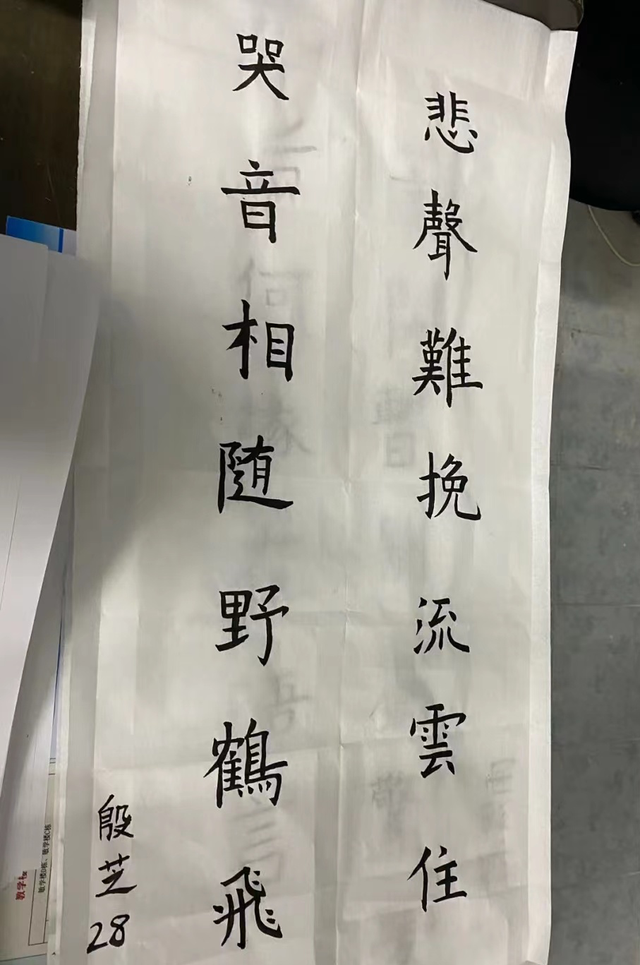 悲聲難挽流雲住
哭音相随野鶴飛
殷芝
28
教学楼